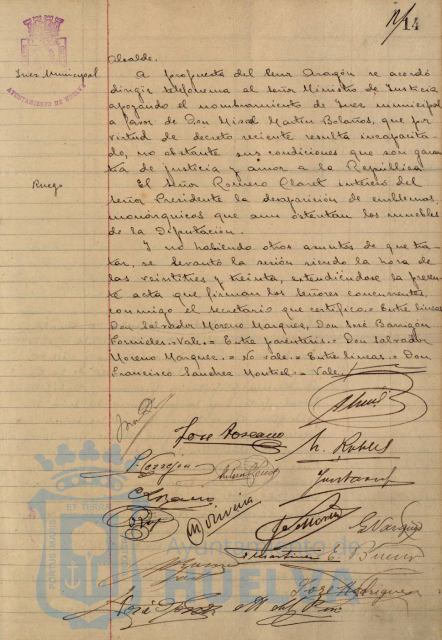 14
AYUNTAMIENTO DE HUELVA
Alcalde.
Juez Municipal
A propuesta del Señor Aragón se acordó
dirigir telefonema al señor Ministro de Justicia
apoyando el nombramiento de Juez municipal
a favor de Don Martín Bolaños, que por
virtud de decreto reciente resulta incapacita-
do, no obstante sus condiciones que son garan-
tía de justicia y amor a la República.
Ruego
El Señor Romero Claret interesó del
señor Presidente la desaparición de emblemas
monárquicos que aun ostentan los muebles
de la Diputación.
Y no habiendo otros asuntos de que tra-
tar, se levantó la sesión siendo la hora de
las veintitres y treinta, extendiéndose la presen-
te acta que firman los señores concurrentes,
conmigo el secretario que certifico.= Entre lineas
Don Salvador Moreno Marquez, Don José Barragán
Fornieles.- Vale.= Entre parentesis.- Don Salvador
Moreno Marquez.= No vale.= Entre lineas.- Don
Francisco Sanchez Montiel.= Vale.
José Toscano
M. Robles
E Vazquez
José Rodriguez
PORTUS MARIS
ET TERRAE
Ayuntamiento de
HUELVA